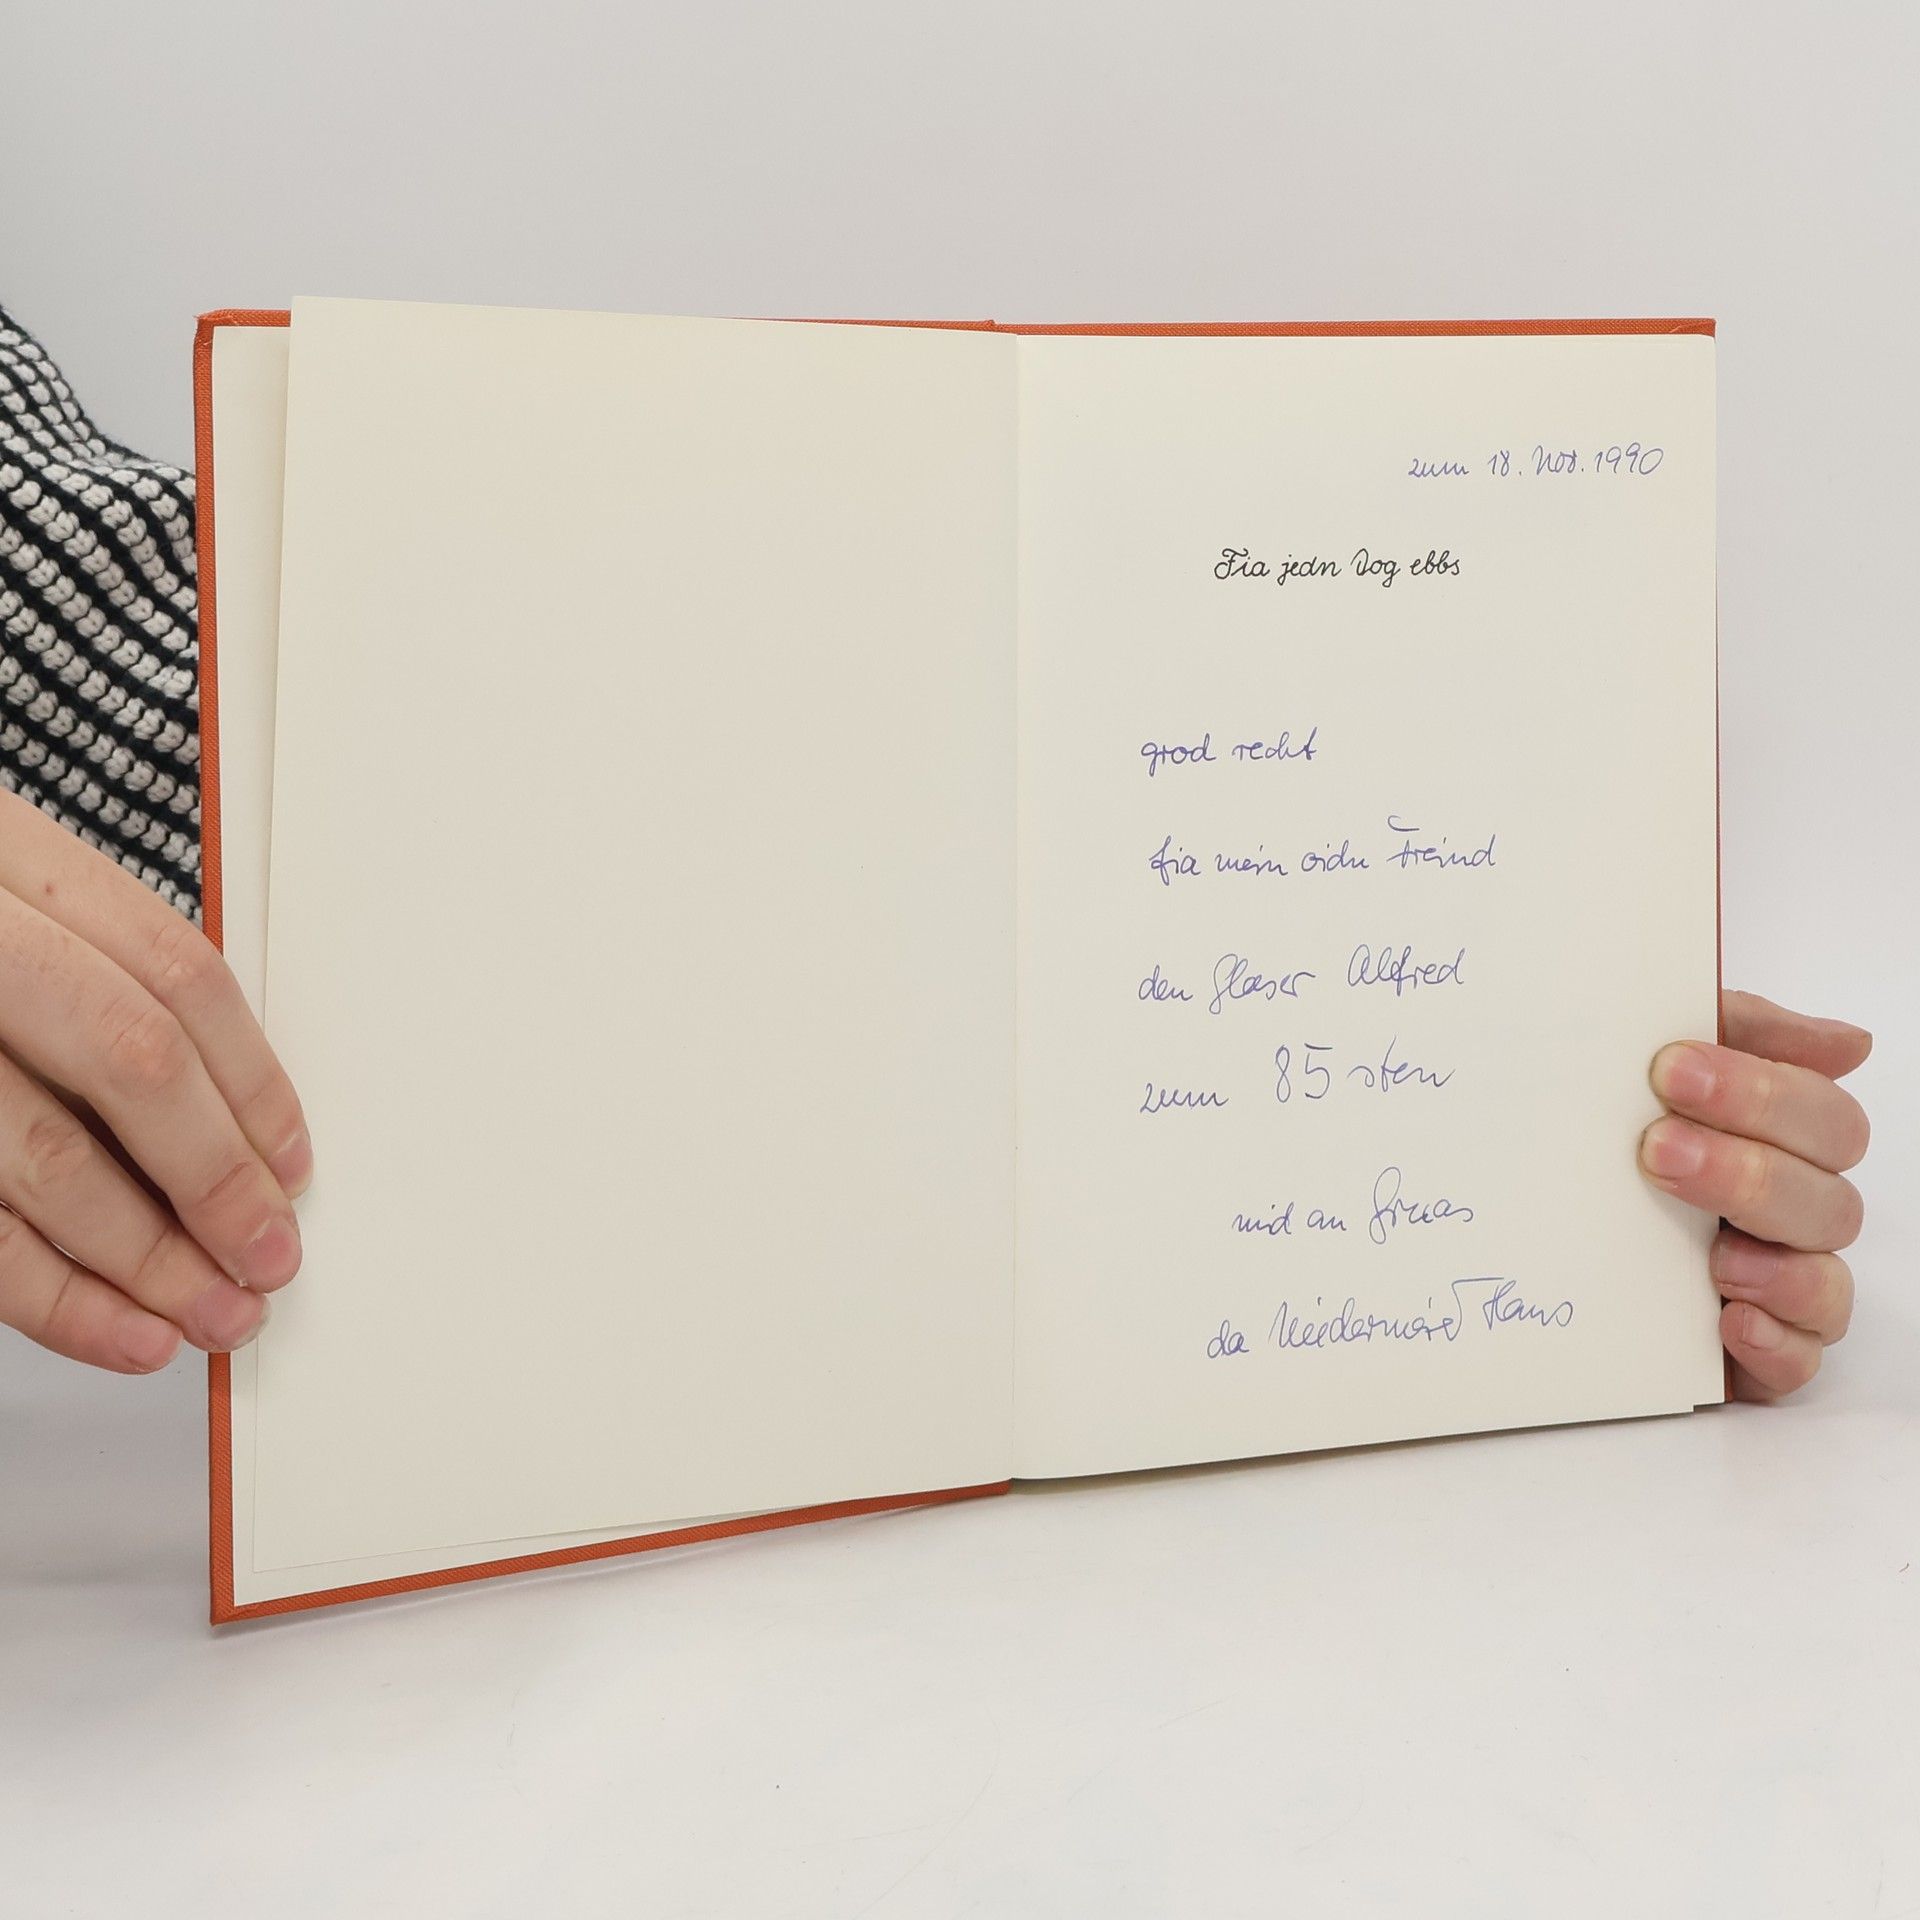 zum 18. Nov. 1990
Fia jedn Dog ebbs
grod recht
fia mein oidn Freind
den Glaser Alfred
zum 85sten
mid an Gruas
da Hans